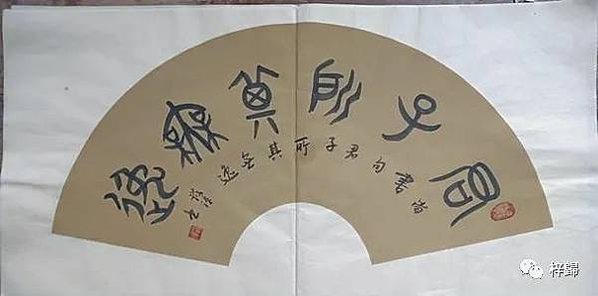 君子所其無逸
尚書句君子所其無逸
梓歸